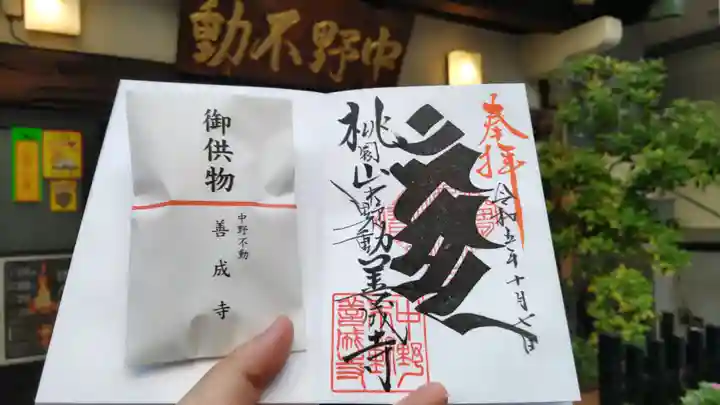 中野不動
御供物
中野不動
善成寺
奉拝
令和五年十月七日
桃園山
中野不動
善成寺